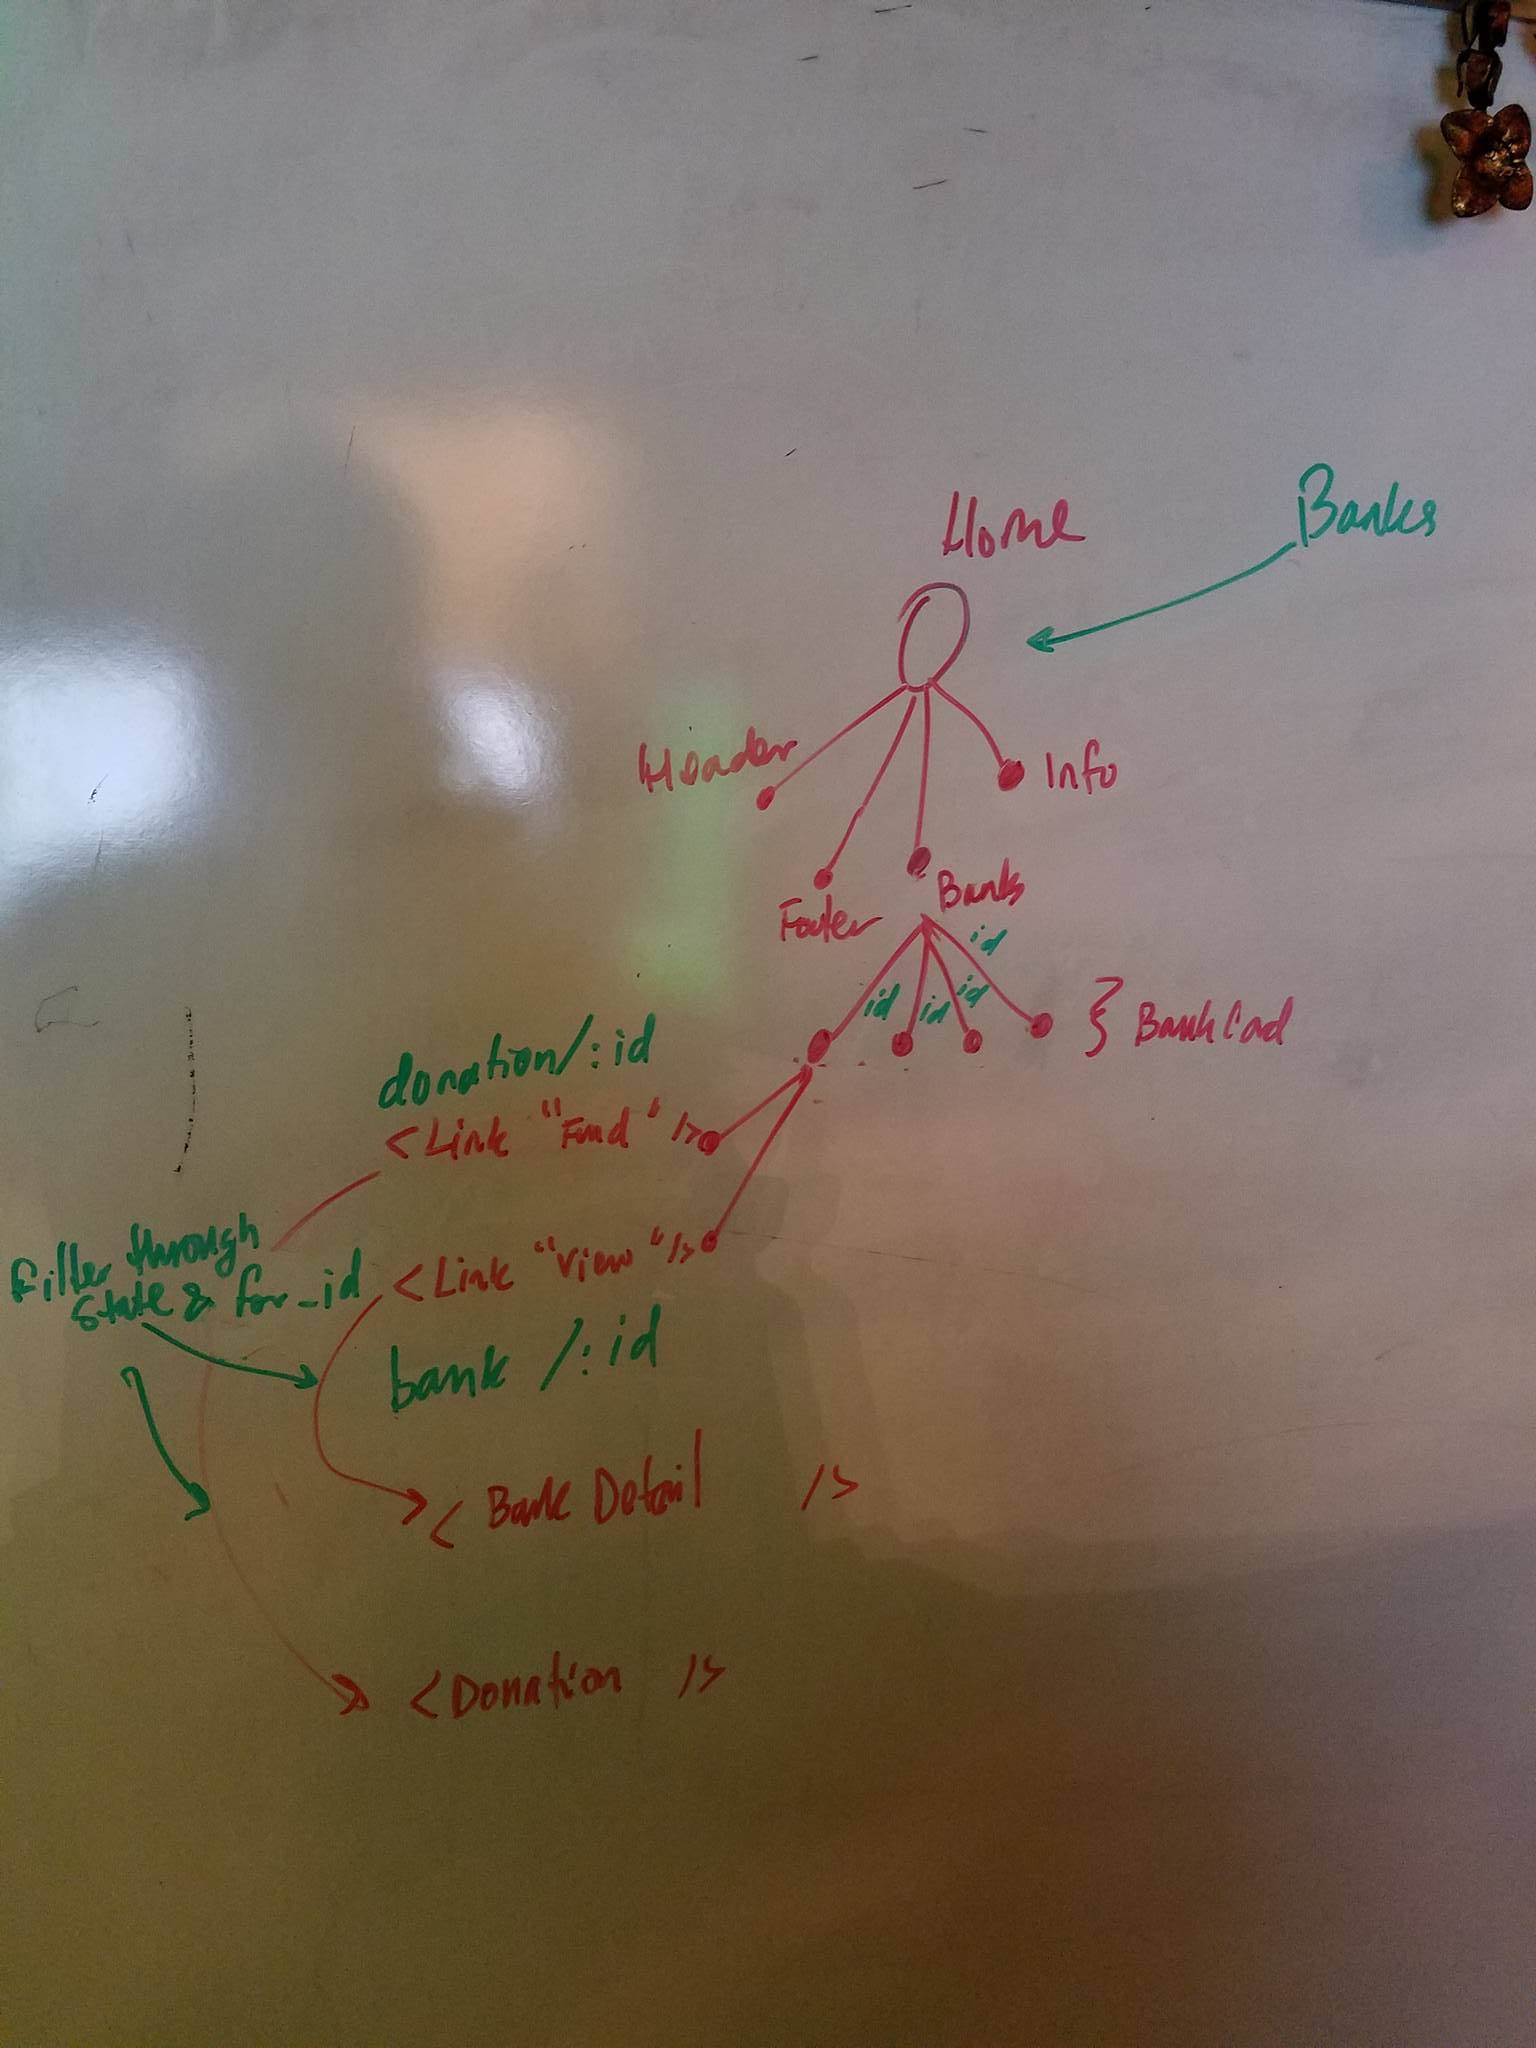 Home
Banks
Header
Info
Footer
Banks
id
id
id
id
} BankCad
donation/:id
<Link "Fund" />
Filter through
State & for_id
<Link "View" />
bank /:id
<Bank Detail />
<Donation />